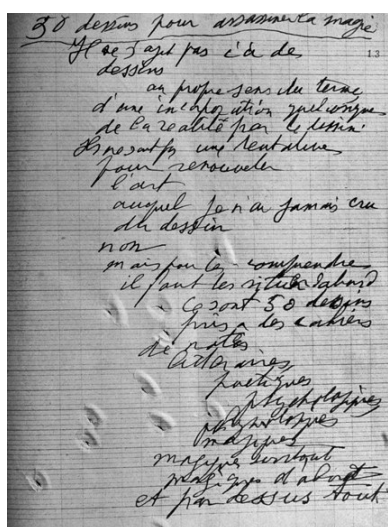 50 dessins pour assassiner la magie
Il ne s'agit pas ici de
13
dessins
au propre sens du terme
d'une incorporation quelconque
de la réalité par le dessin.
Ils ne sont pas une tentative
pour renouveler
l'art
auquel je n'ai jamais cru
du dessin
non
mais pour les comprendre
il faut les situer d'abord
Ce sont 50 dessins
pris à des cahiers
de notes
littéraires
poétiques
psychologiques
physiologiques
magiques
magiques surtout
magiques d'abord
et par dessus tout